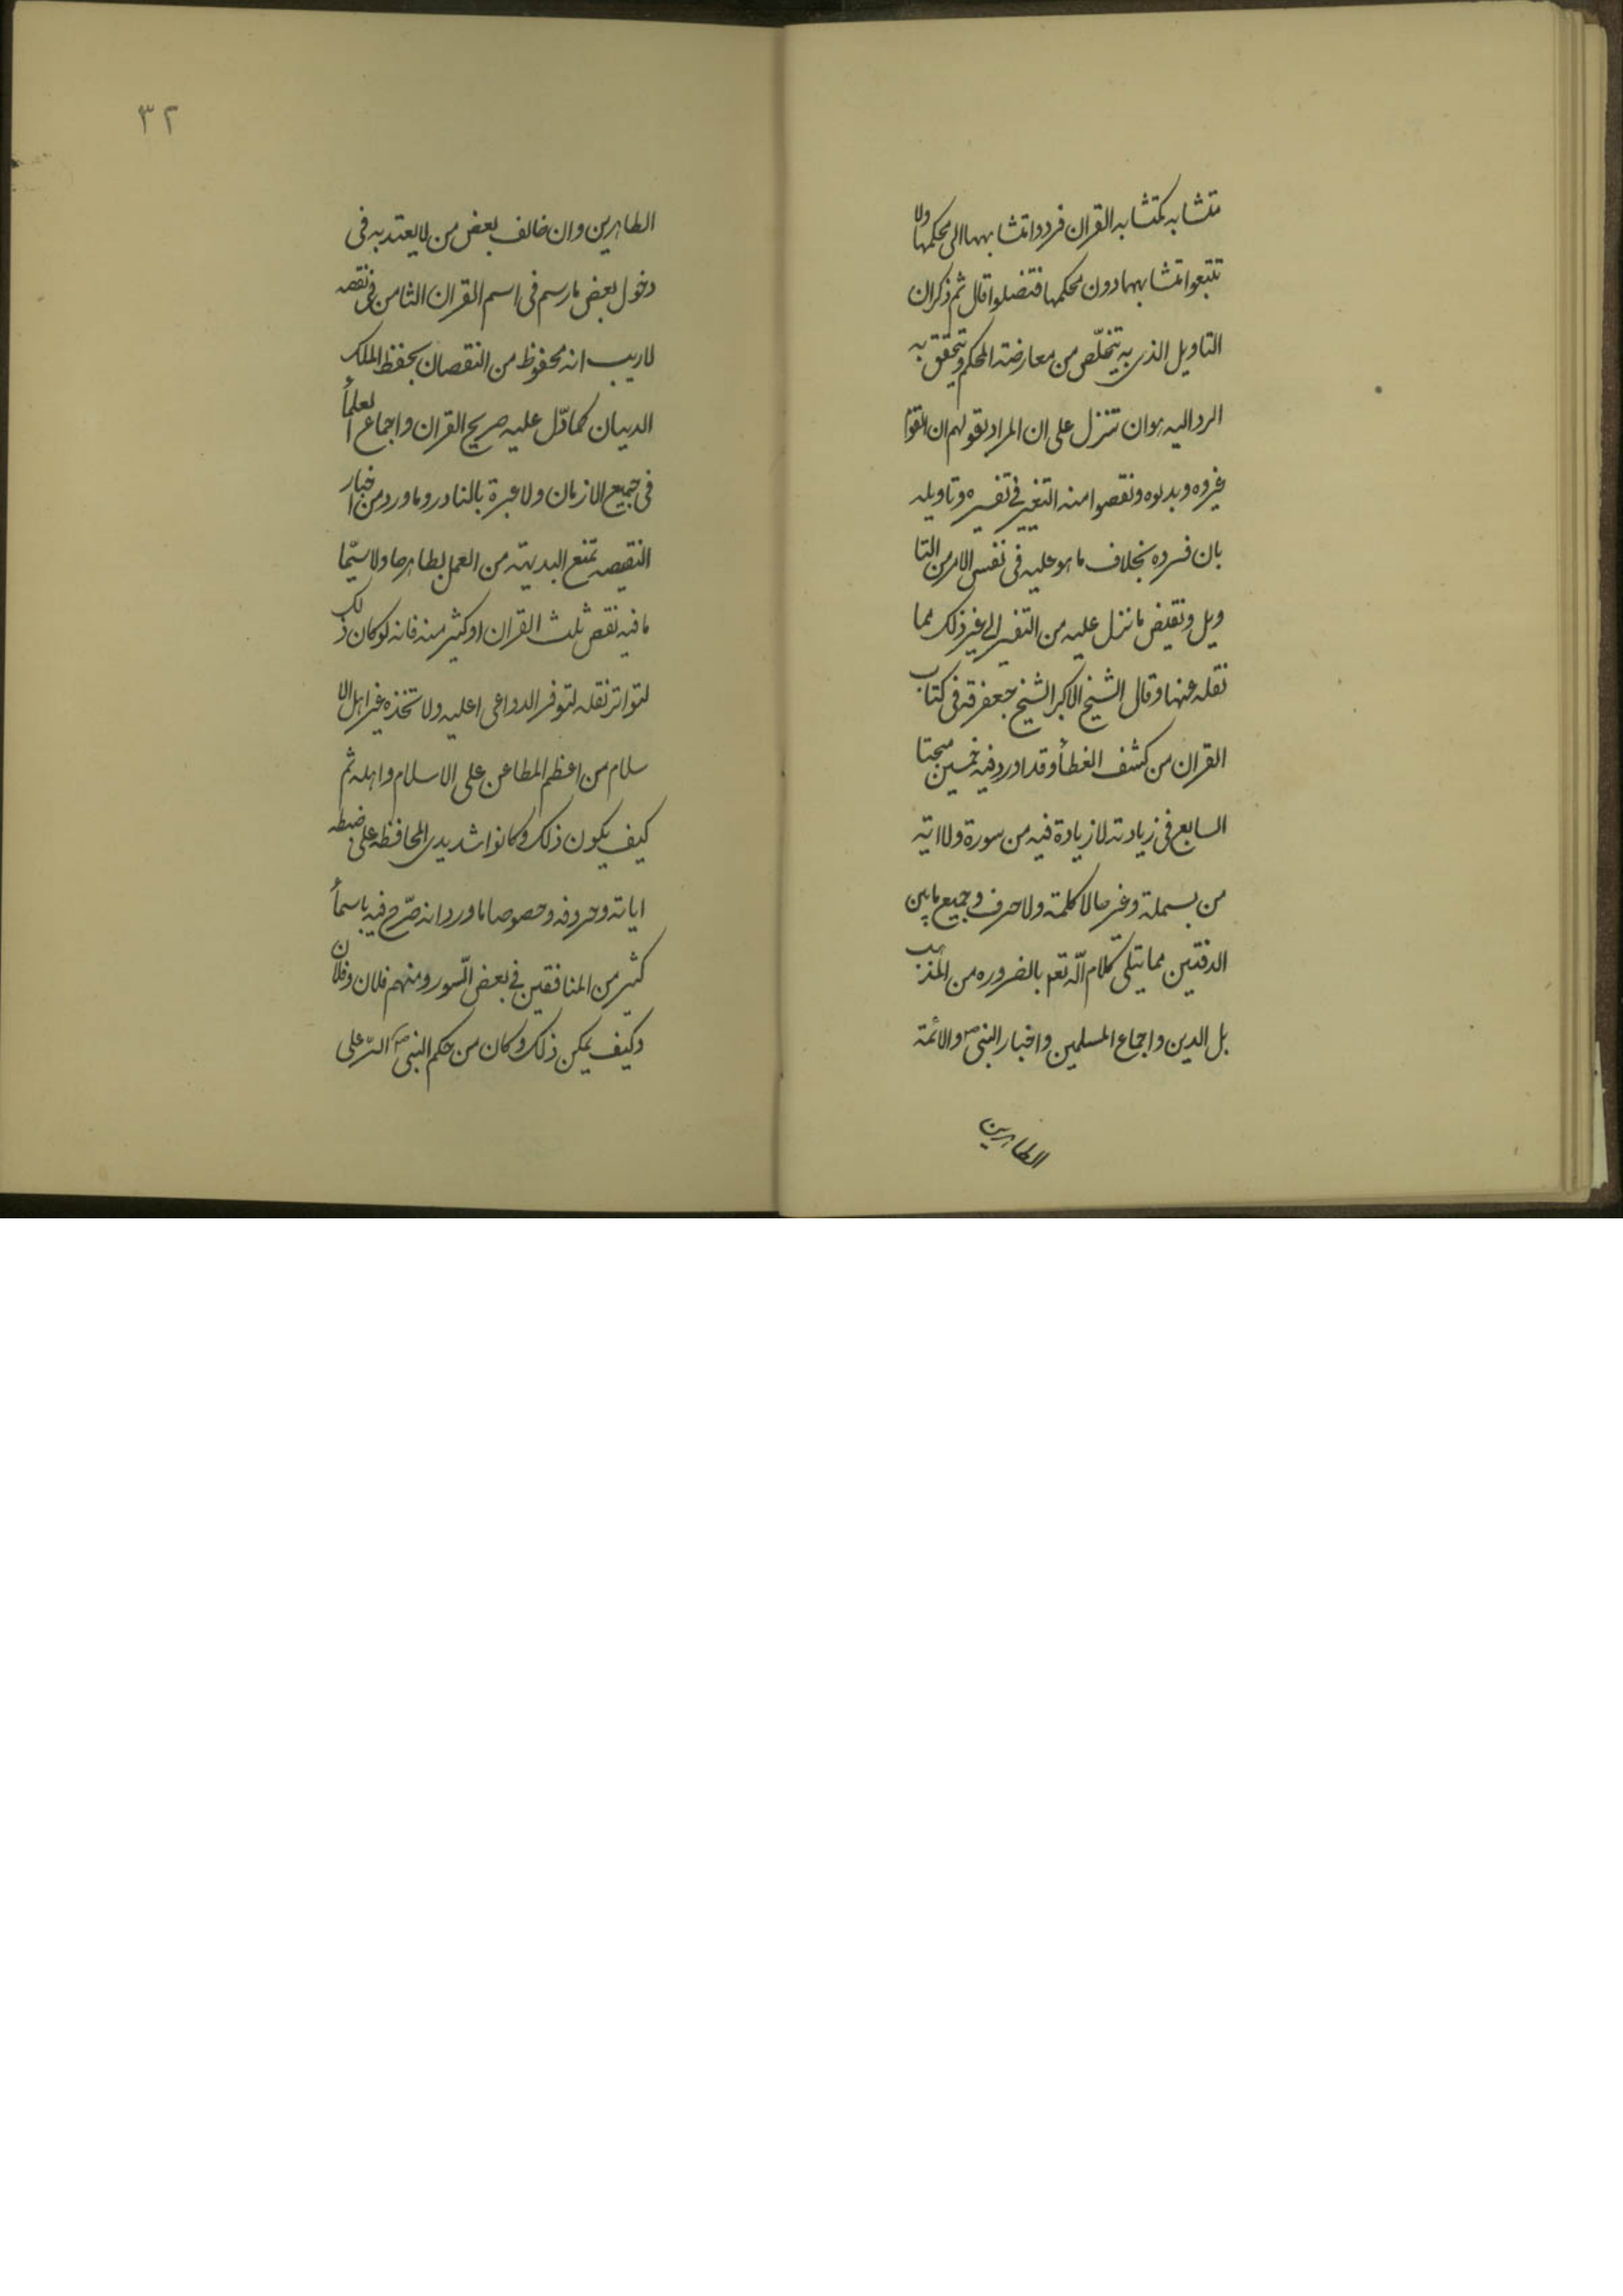 متشابه كمتشابه القران فردوا متشابهها الى محكمها ولا
تتبعوا متشابهها دون محكمها فتضلوا قال ثم ذكر ان
التاويل الذى به يتخلّص من معارضته المحكم ويتحقق به
الرد اليه هو ان تنزل على ان المراد بقولهم ان القوم
غيروه وبدلوه ونقصوا منه التغيير فى تفسيره وتاويله
بان فسروه بخلاف ما هو عليه فى نفس الامر من التا
ويل ونقيض ما نزل عليه من التفسير الى غير ذلك مما
نقله عنها وقال الشيخ الاكبر الشيخ جعفر قه فى كتاب
القران من كشف الغطأ وقد اورد فيه خمسين مبحثا
السابع فى زيادته لا زيادة فيه من سورة ولا اية
من بسملة وغيرها لا كلمة ولا حرف وجميع ما بين
الدفتين مما يتلى كلام اللّه تعم بالضروره من المذهب
بل الدين واجماع المسلمين واخبار النبى ص والائمة
الطاهرين
٣٢
الطاهرين وان خالف بعض من لا يعتد به فى
دخول بعض ما رسم فى اسم القران الثامن فى نقصه
لا ريب انه محفوظ من النقصان بحفظ الملك
الديان كما دّل عليه صريح القران واجماع العلمأ
فى جميع الازمان ولا عبرة بالنادر وما ورد من اخبار
النقيصه تمنع البديهة من العمل بظاهرها ولا سيّما
ما فيه نقص ثلث القران او كثير منه فانه لو كان ذلك
لتواتر نقله لتوفر الدواعى عليه ولا تخذه غير اهل الا
سلام من اعظم المطاعن على الاسلام واهله ثم
كيف يكون ذلك وكانوا شديدى المحافظه على ضبطه
اياته وحروفه وخصوصا ما ورد انه صّرح فيه باسمأ
كثير من المنافقين فى بعض السّور ومنهم فلان وفلان
وكيف يمكن ذلك وكان من حكم النبى ص السّتر على